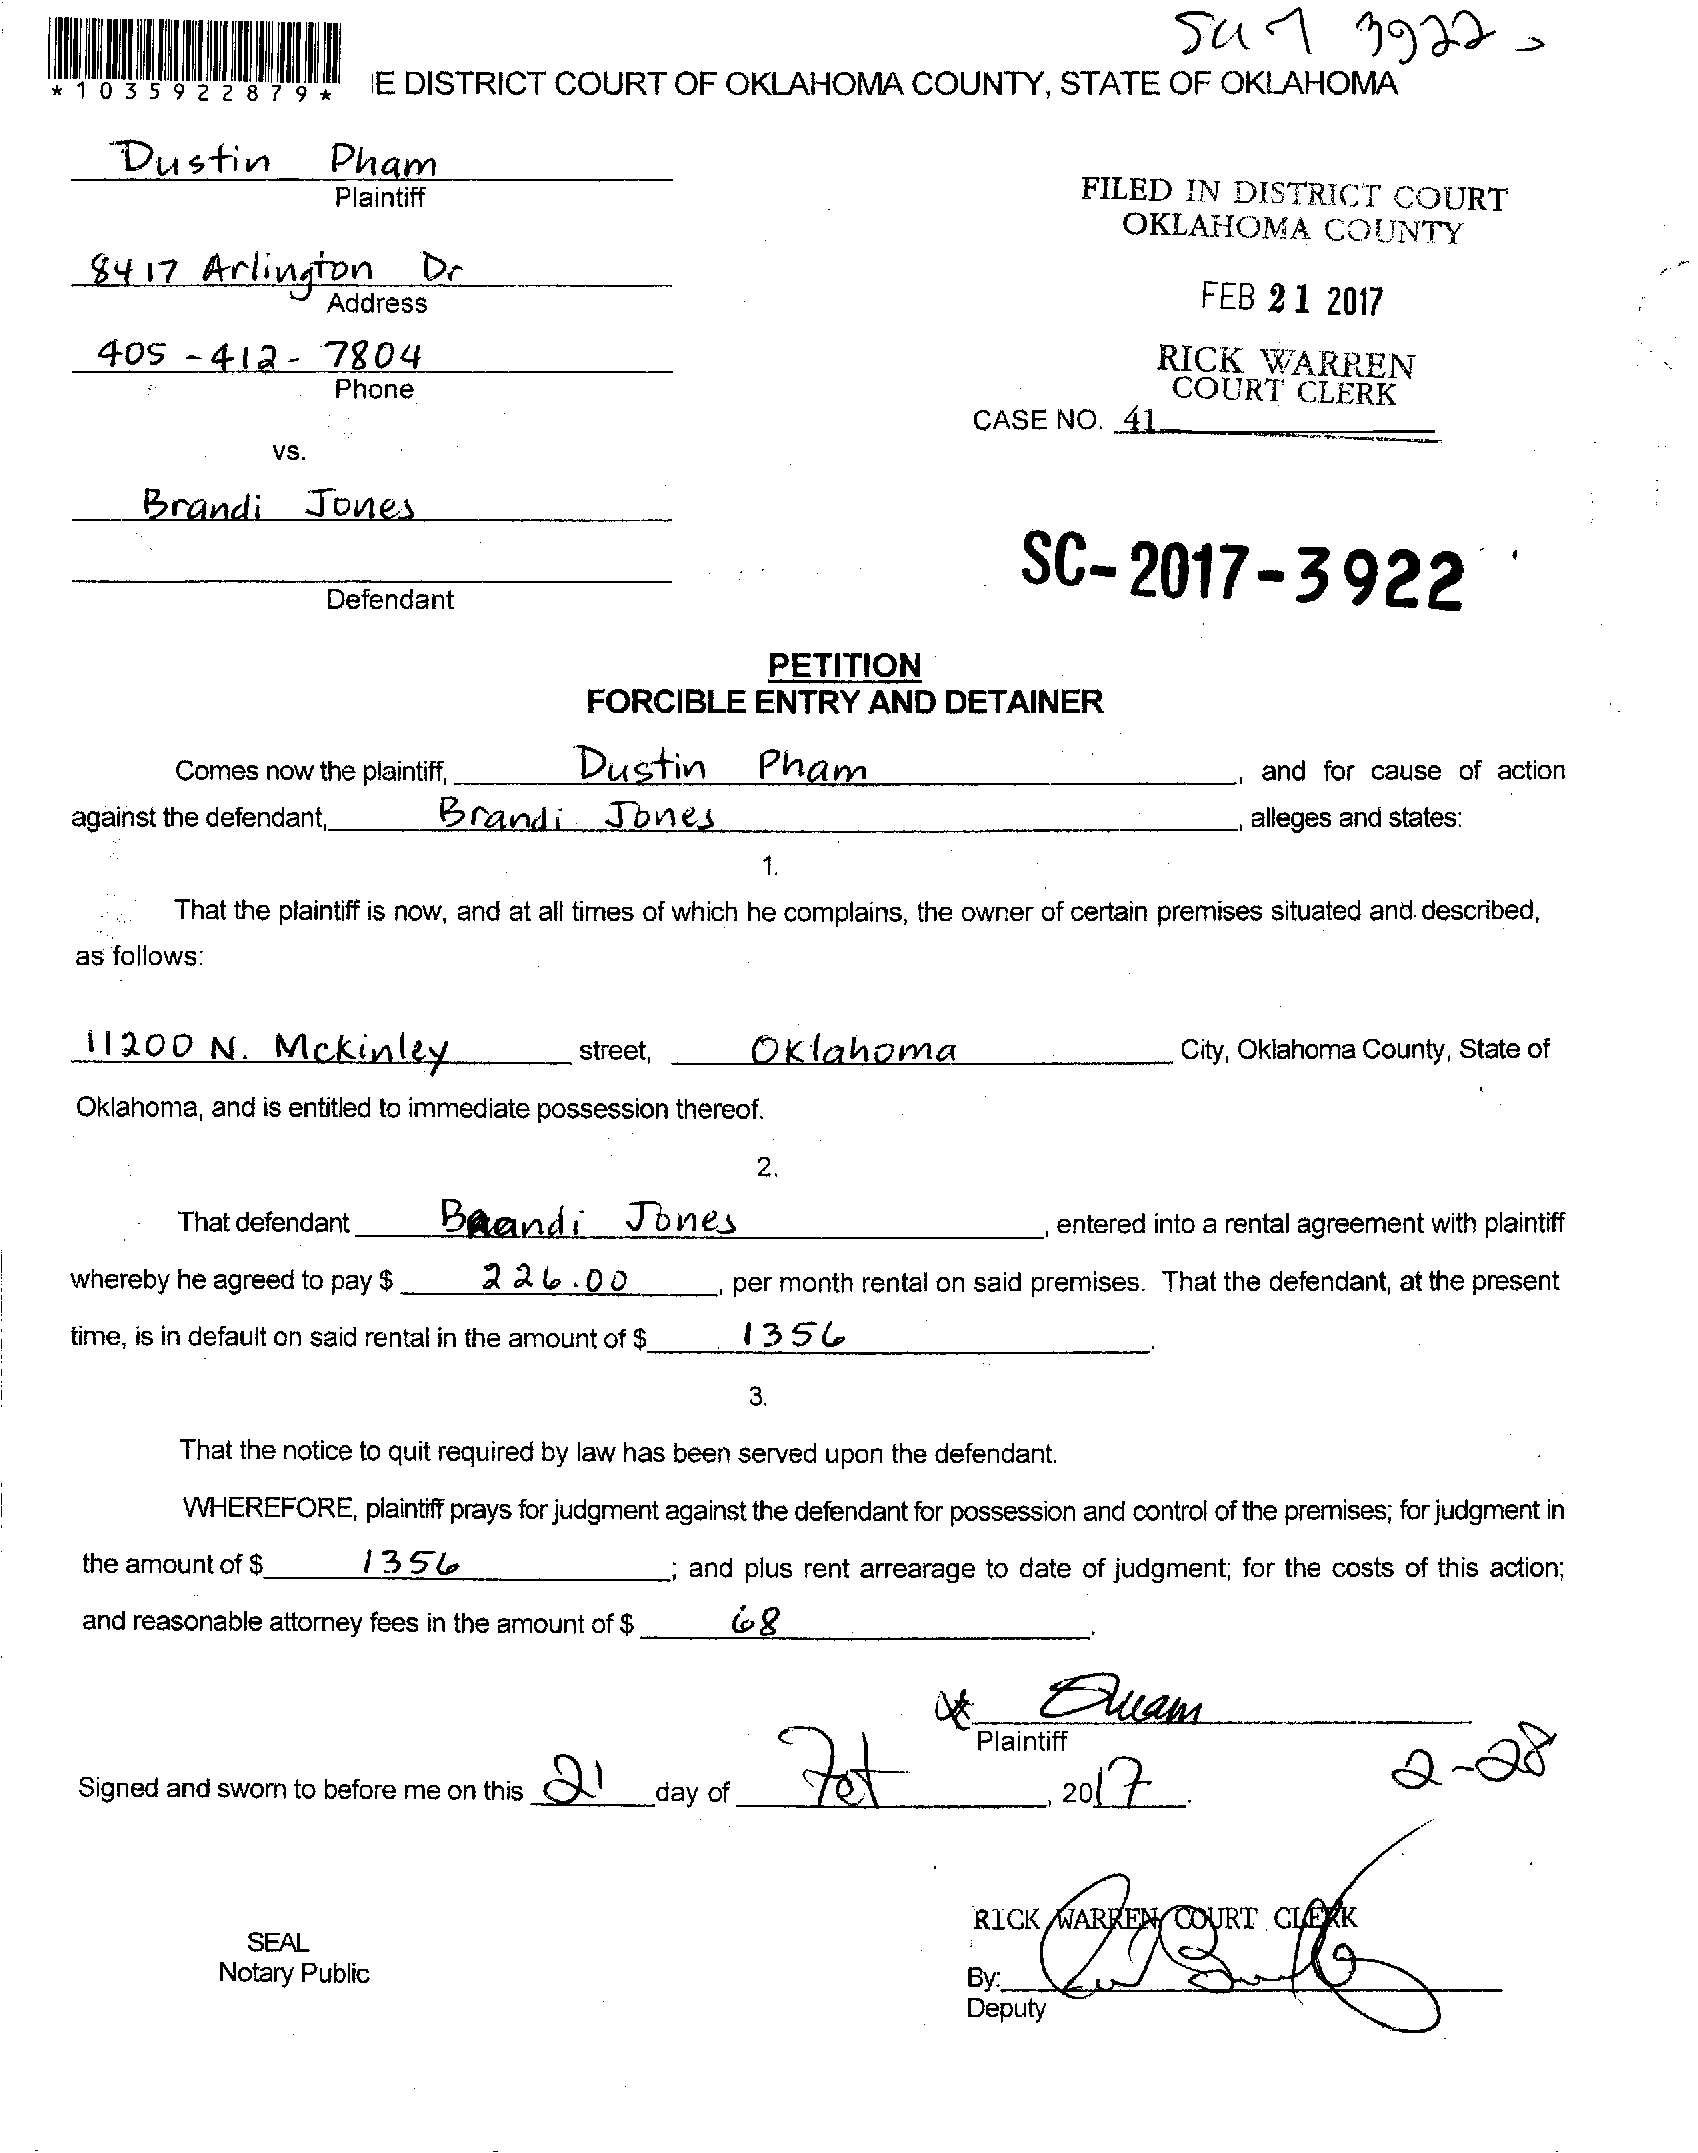 3922
*1035922879* E DISTRICT COURT OF OKLAHOMA COUNTY, STATE OF OKLAHOMA
Dustin Pham
Plaintiff
FILED IN DISTRICT COURT
OKLAHOMA COUNTY
8417 Arlington Dr
Address
FEB 21 2017
405-412-7804
Phone
RICK WARREN
COURT CLERK
CASE NO. 41
vs.
Brandi Jones
Defendant
SC-2017-3922
PETITION
FORCIBLE ENTRY AND DETAINER
Comes now the plaintiff, Dustin Pham, and for cause of action
against the defendant, Brandi Jones, alleges and states:
1.
That the plaintiff is now, and at all times of which he complains, the owner of certain premises situated and described,
as follows:
11200 N. Mckinley street, Oklahoma City, Oklahoma County, State of
Oklahoma, and is entitled to immediate possession thereof.
2.
That defendant Brandi Jones, entered into a rental agreement with plaintiff
whereby he agreed to pay $ 226.00, per month rental on said premises. That the defendant, at the present
time, is in default on said rental in the amount of $ 1356.
3.
That the notice to quit required by law has been served upon the defendant.
WHEREFORE, plaintiff prays for judgment against the defendant for possession and control of the premises; for judgment in
the amount of $ 1356; and plus rent arrearage to date of judgment; for the costs of this action;
and reasonable attorney fees in the amount of $ 68.
Plaintiff
2-28
Signed and sworn to before me on this 21 day of Feb, 2017.
RICK WARREN COURT CLERK
SEAL
Notary Public
By:
Deputy